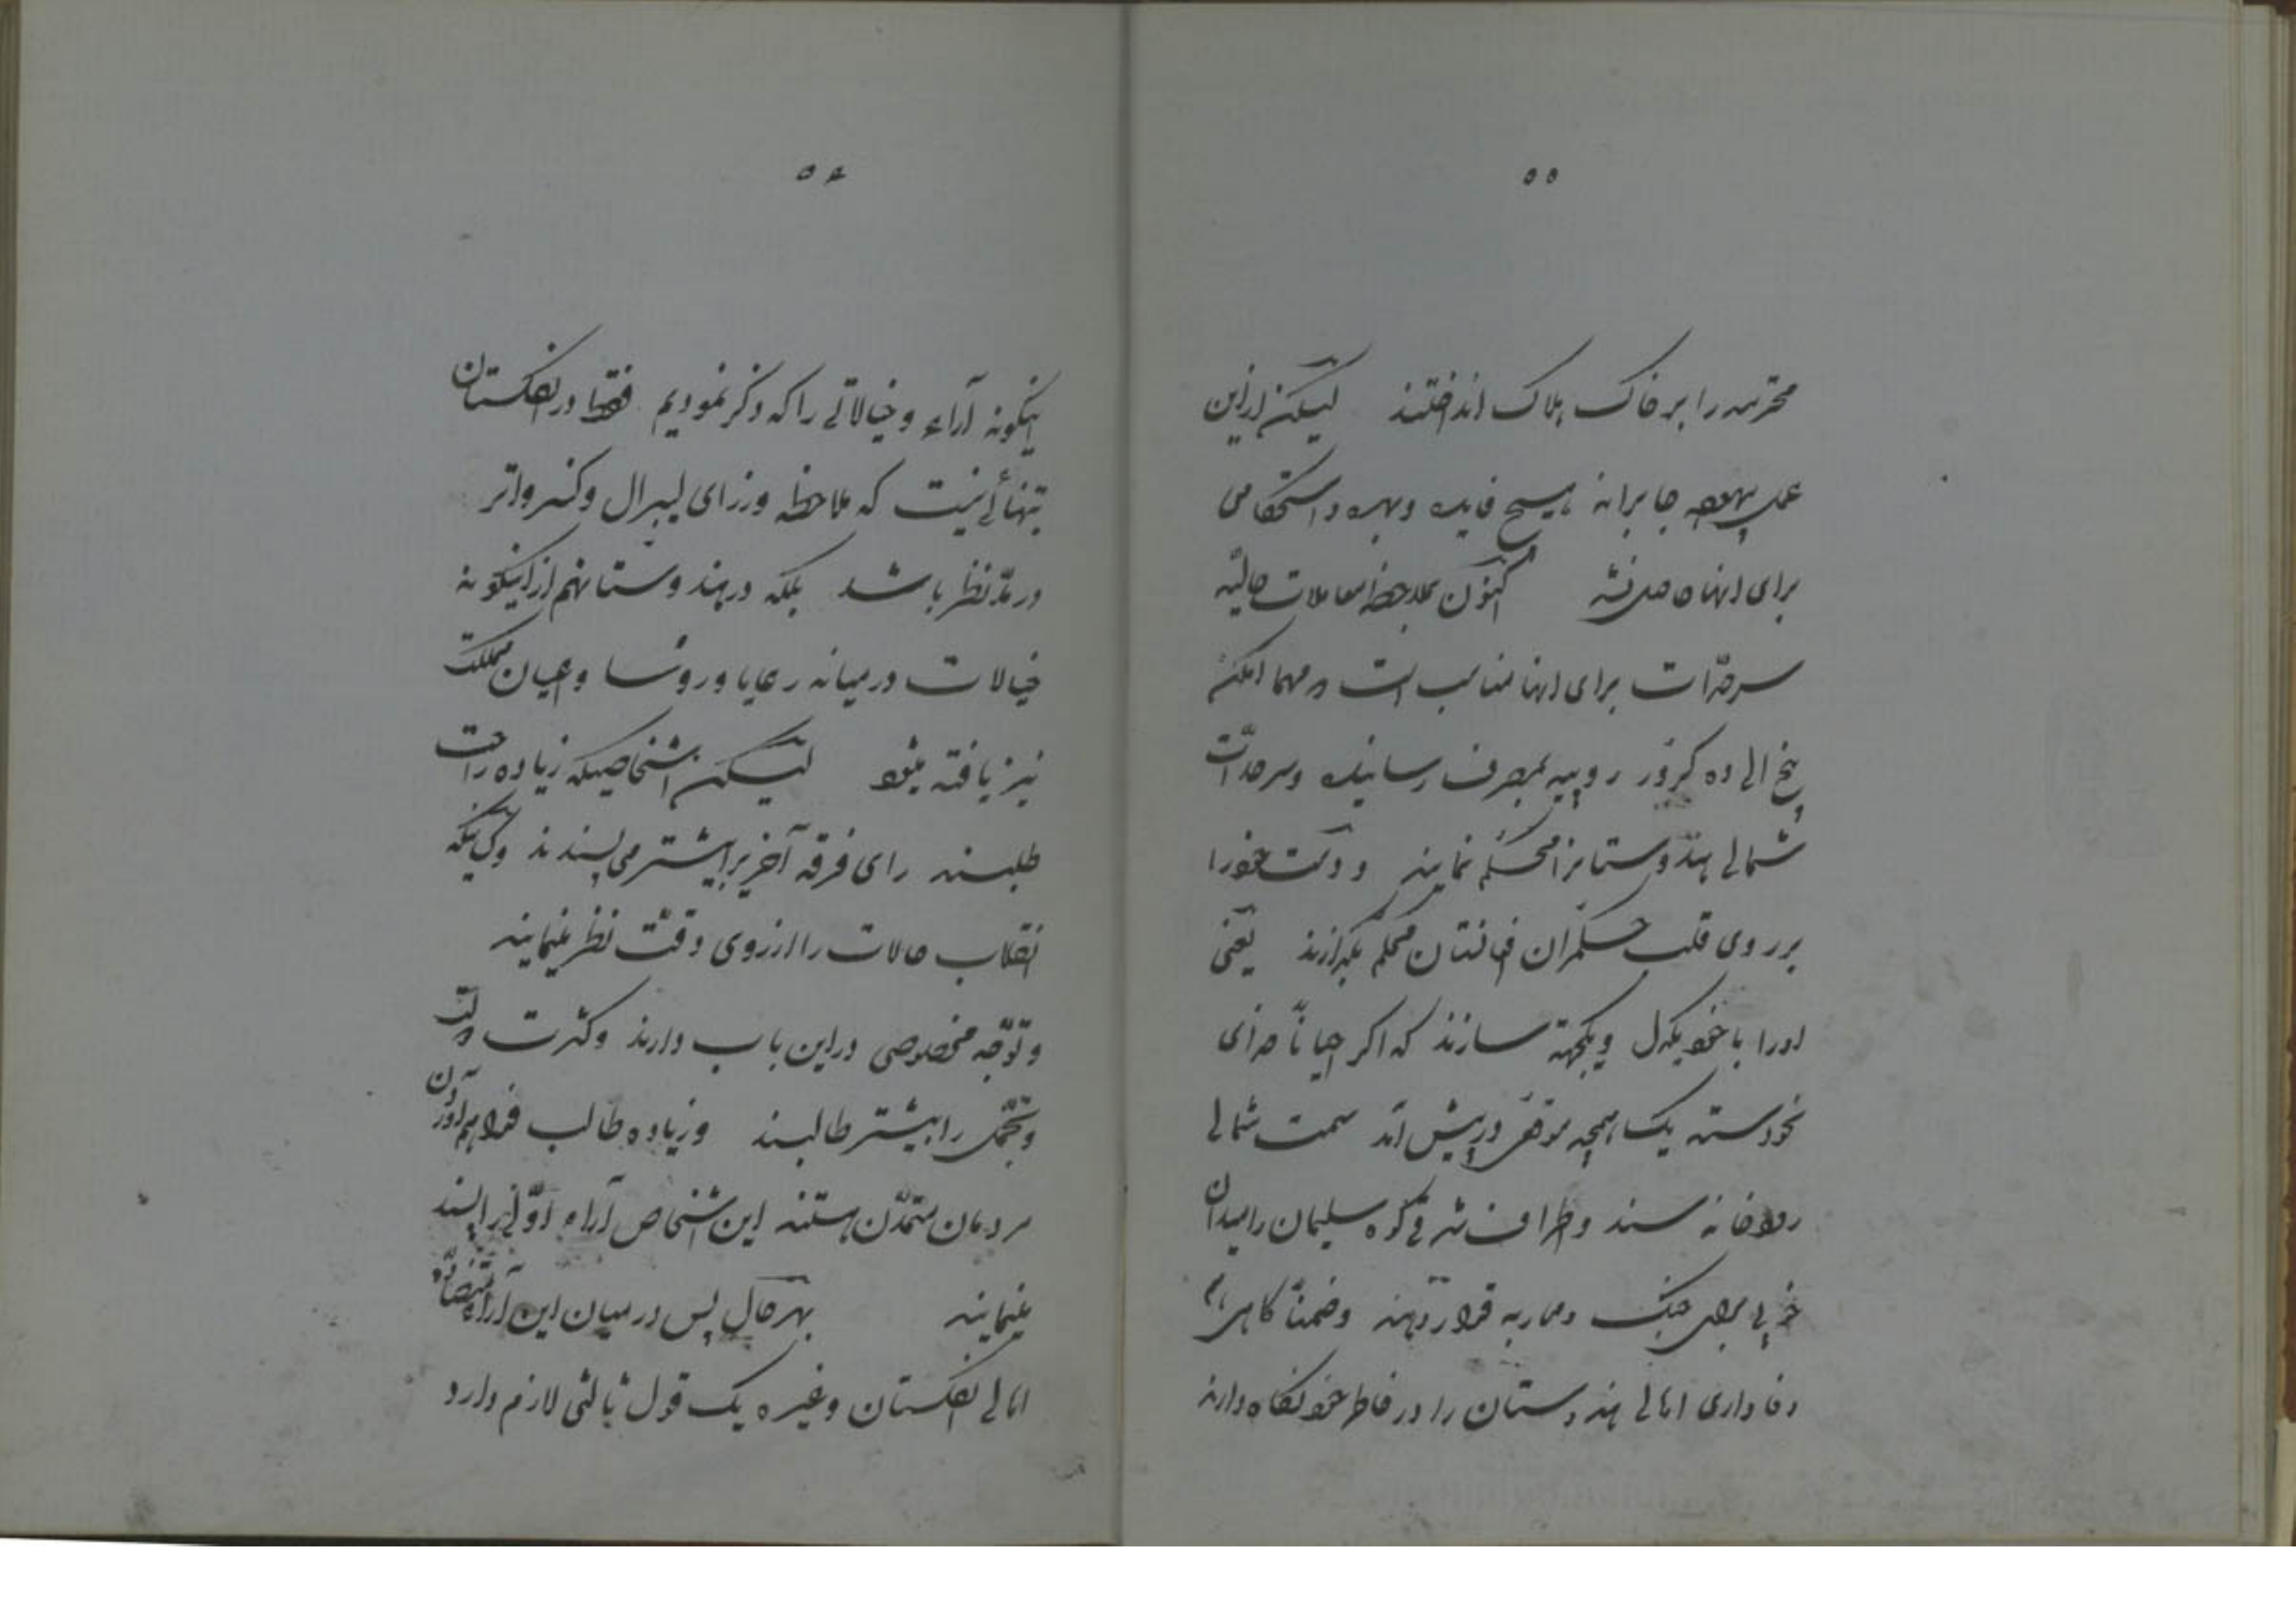 ۵۵
محترمه را بر خاک هلاک انداختند لیکن از این
عمل بیهوده جابرانه هیچ فایده و بهره و استحکامی
برای آنها حاصل نشد اکنون بملاحظه معاملات حالیّه
سرحدّات برای آنها مناسب است که مهما امکن
پنج الی ده کرور روپیه بمصرف رسانیده و سرحدّات
شمالی هندوستانرا محکم نمایند و دست خود را
بر روی قلب حکمران افغانستان محکم بگذارند یعنی
او را با خود یکدل و یکجهة سازند که اگر احیاناً خدای
نخواسته یک همچه موقعی در پیش آمد سمت شمالی
رودخانه سند و اطراف شرقی کوه سلیمان را میدان
خوبی برای جنگ و محاربه قرار دهند و ضمناً گاهی هم
وفاداری اهالی هندوستان را در خاطر خود نگاه دارند
۵۶
اینگونه آراء و خیالاتی را که ذکر نمودیم فقط در انگلستان
بتنهائی نیست که ملاحظه وزرای لیبرال و کنسرواتر
در مدّ نظر باشد بلکه در هندوستان هم از اینگونه
خیالات در میانه رعایا و روسا و اعیان مملکت
نیز یافته میشود لیکن اشخاصیکه زیاده راحت
طلبند رای فرقه آخریرا بیشتر می پسندند و کسانیکه
انقلاب حالات را از روی دقت نظر مینمایند
و توجّه مخصوصی در این باب دارند و کثرت دولت
و تجمّل را بیشتر طالبند و زیاده طالب فراهم آوردن
مردمان متمدّن هستند این اشخاص آراء اوّلی را پسند
مینمایند بهر حال پس در میان این آراء متضادّه
اهالی انگلستان و غیره یک قول ثالثی لازم دارد